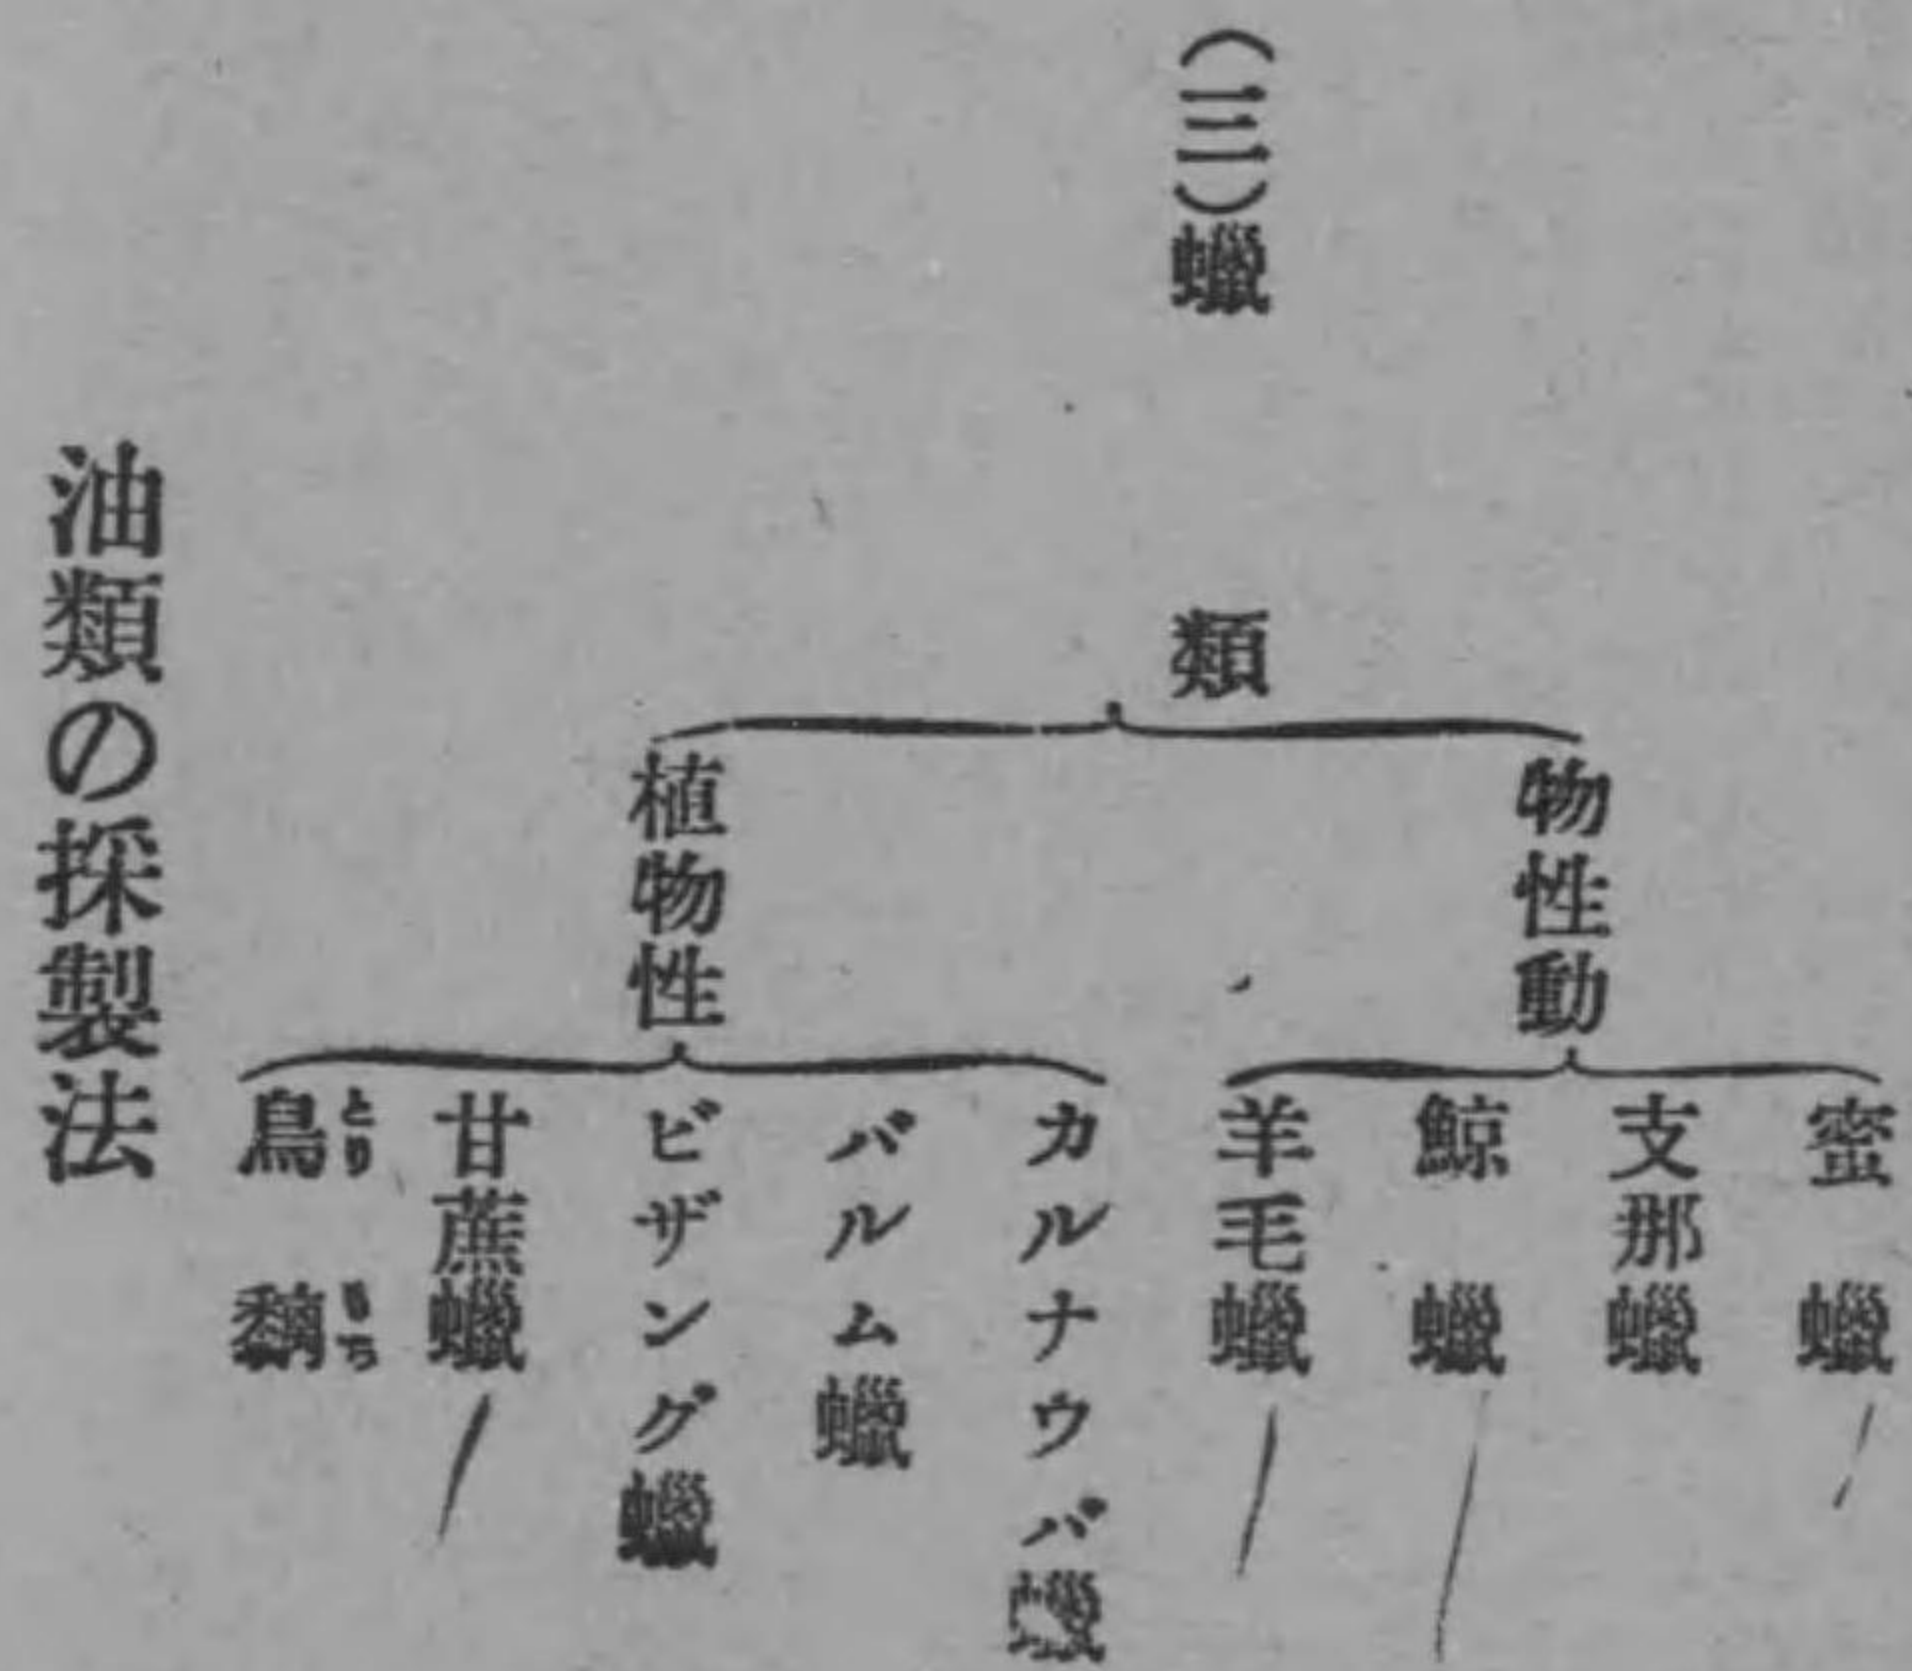 (三)蠟類
物性動
蜜蠟
支那蠟
鯨蠟
羊毛蠟
植物性
カルナウバ蠟
パルム蠟
ビザング蠟
甘蔗蠟
鳥黐
とりもち
油類の採製法